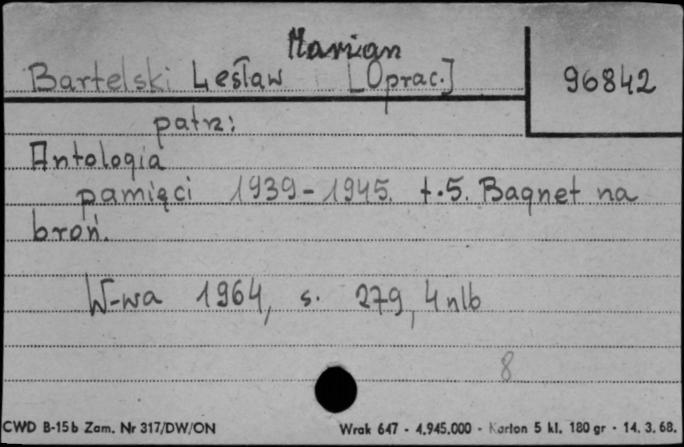 Marian
Bartelski Lesław [Oprac.]
96842
patrz:
Antologia
pamięci 1939-1945. t.5. Bagnet na
broń.
W-wa 1964, s. 279, 4 nlb
8
CWD B-15b Zam. Nr 317/DW/ON
Wrak 647 - 4.945.000 - Karton 5 kl. 180 gr - 14. 3. 68.